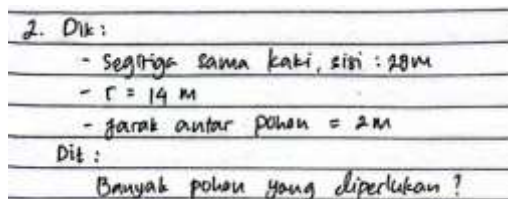 2. Dik :
- Segitiga sama kaki, sisi : 28m
- r = 14 m
- Jarak antar pohon = 2m
Dit :
Banyak pohon yang diperlukan ?